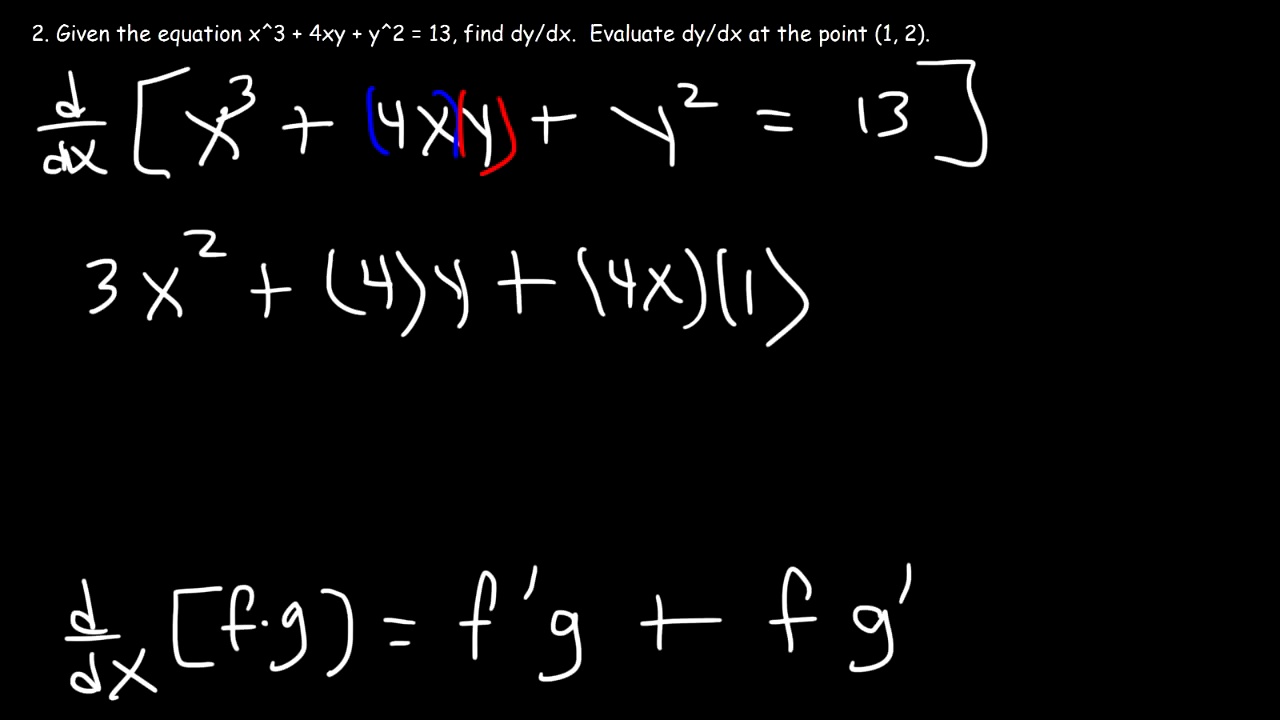 2. Given the equation x^3 + 4xy + y^2 = 13, find dy/dx. Evaluate dy/dx at the point (1, 2).
d/dx [x³ + (4x)(y) + y² = 13]
3x² + (4)y + (4x)(1)
d/dx [f·g) = f'g + fg'